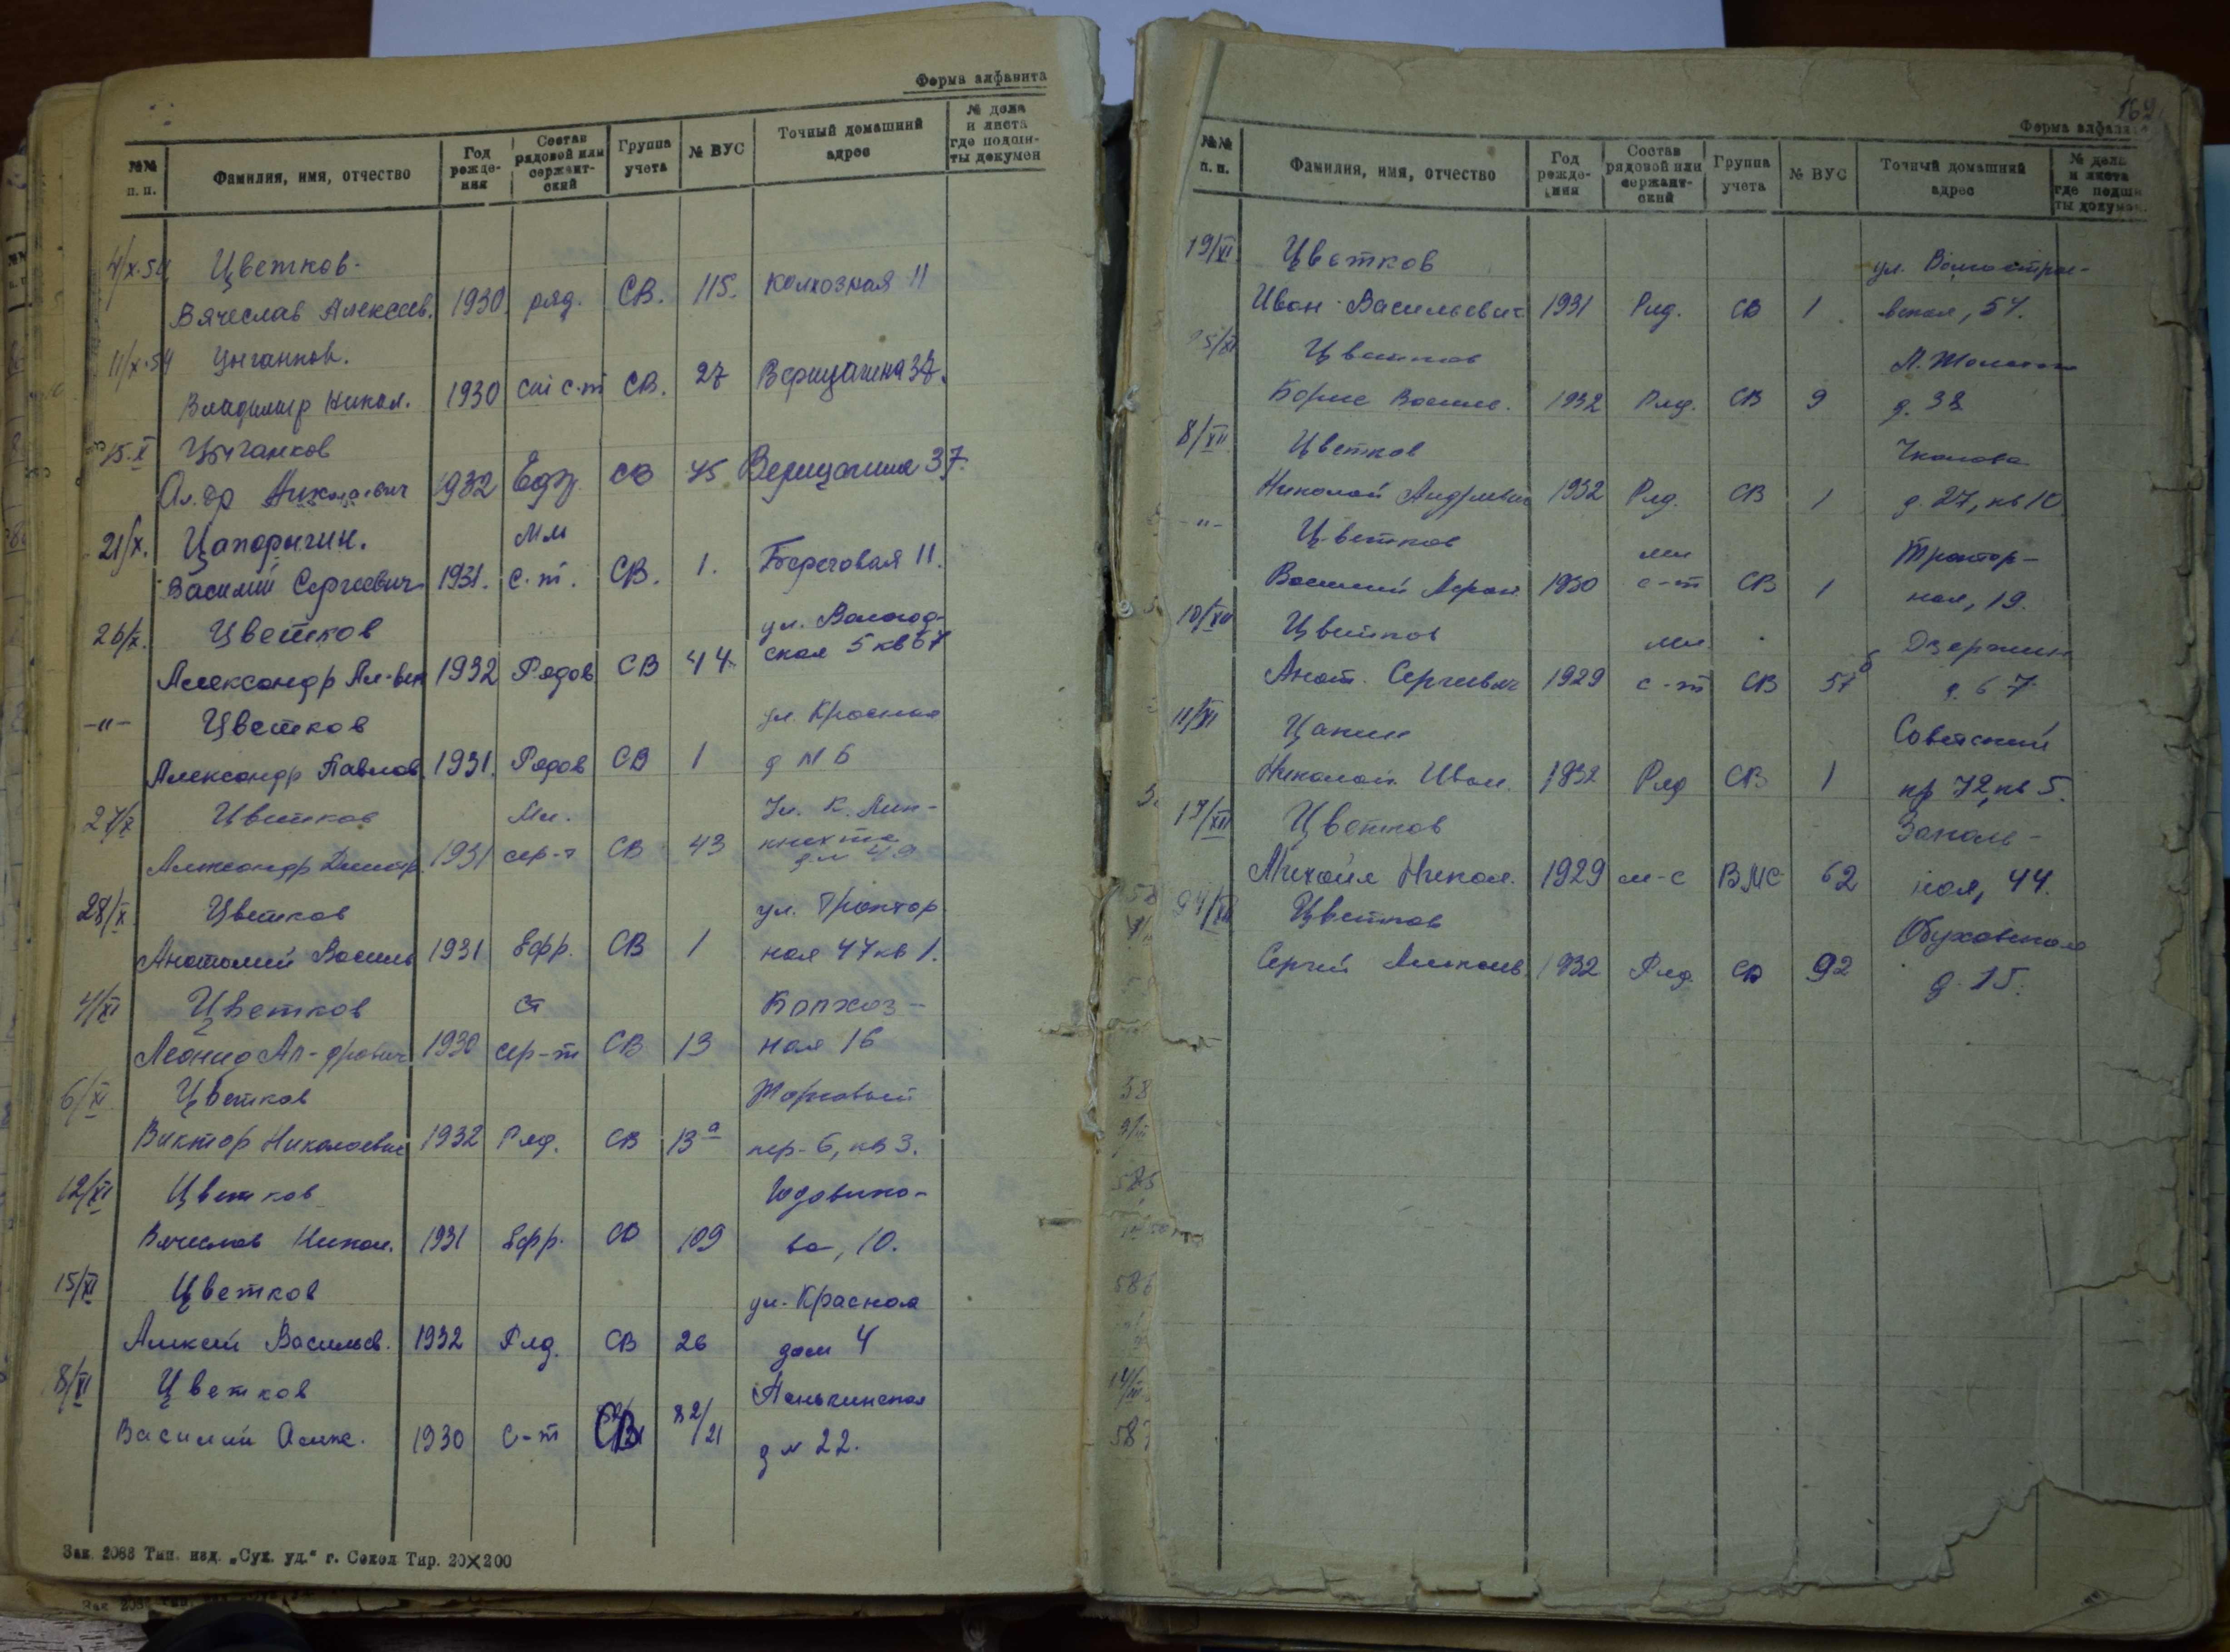 Форма алфавита
№№ п. п. Фамилия, имя, отчество Год рожде- ния Состав рядовой или сержант- ский Группа учета № ВУС Точный домашний адрес № дела и листа где подши- ты докумен
4/X-54 Цветков
Вячеслав Алексеев. 1930 ряд. СВ. 115. Колхозная 11
11/X-54 Цыганков.
Владимир Никол. 1930 с-т СВ. 27 Верищагина 37.
15.X Цыганков
Ал.др Николаевич 1932 Ефр. СВ 45 Верищагина 37.
21/X. Цапоричин. Мл
Василий Сергеевич 1931. с-т. СВ. 1. Береговая 11.
26/X. Цветков ул. Вологод-
Александр Ал-вич 1932 Рядов СВ 44 ская 5 кв 67
-"- Цветков ул. Красная
Александр Павлов. 1931. Рядов СВ 1 д № 6
27/X Цветков Мл. Ул. К. Либ-
Александр Дмитр. 1931 сер-т СВ 43 кнехта
д № 49
28/X Цветков ул. Трактор
Анатолий Василь 1931 Ефр. СВ 1 ная 47 кв 1.
4/XI Цветков Ст Колхоз-
Леонид Ал-дрович 1930 сер-т СВ 13 ная 16
6/XI Цветков Торговый
Виктор Николаевич 1932 Ряд. СВ 13а пер-6, кв 3.
12/XI Цветков Годовико-
Вячеслав Никол. 1931 Ефр. СВ 109 ва, 10.
15/XI Цветков ул. Красная
Алексей Васильев. 1932 Ряд. СВ 26 дом 4
8/XI Цветков
Василий Алек. 1930 с-т СВ 82/21 д № 22.
Зак. 2088 Тип. изд. „Сух. уд.“ г. Сокол Тир. 20×200
162
Форма алфавита
№№ п. п. Фамилия, имя, отчество Год рожде- ния Состав рядовой или сержант- ский Группа учета № ВУС Точный домашний адрес № дела и листа где подши ты докумен.
19/XI Цветков ул.
Иван Васильевич 1931 Ряд. СВ 1 вская, 57.
25/XI Цветков
Борис Васил. 1932 Ряд. СВ 9 д. 38
8/XII Цветков Чкалова
Николай Андреевич 1932 Ряд. СВ 1 д. 27, кв 10
-"- Цветков мл Трактор-
Василий 1930 с-т СВ 1 ная, 19.
10/XII Цветков мл. Дзержин
Анат. Сергеевич 1929 с-т СВ 57 д. 67
11/XII Цапин Советский
Николай Иван. 1932 Ряд СВ 1 пр 72, кв 5.
17/XII Цветков Заколь-
Михаил Никол. 1929 м-с ВМС 62 ная, 44.
24/XII Цветков Обуховская
Сергей Алексеев. 1932 Ряд. СВ 92 д. 15.